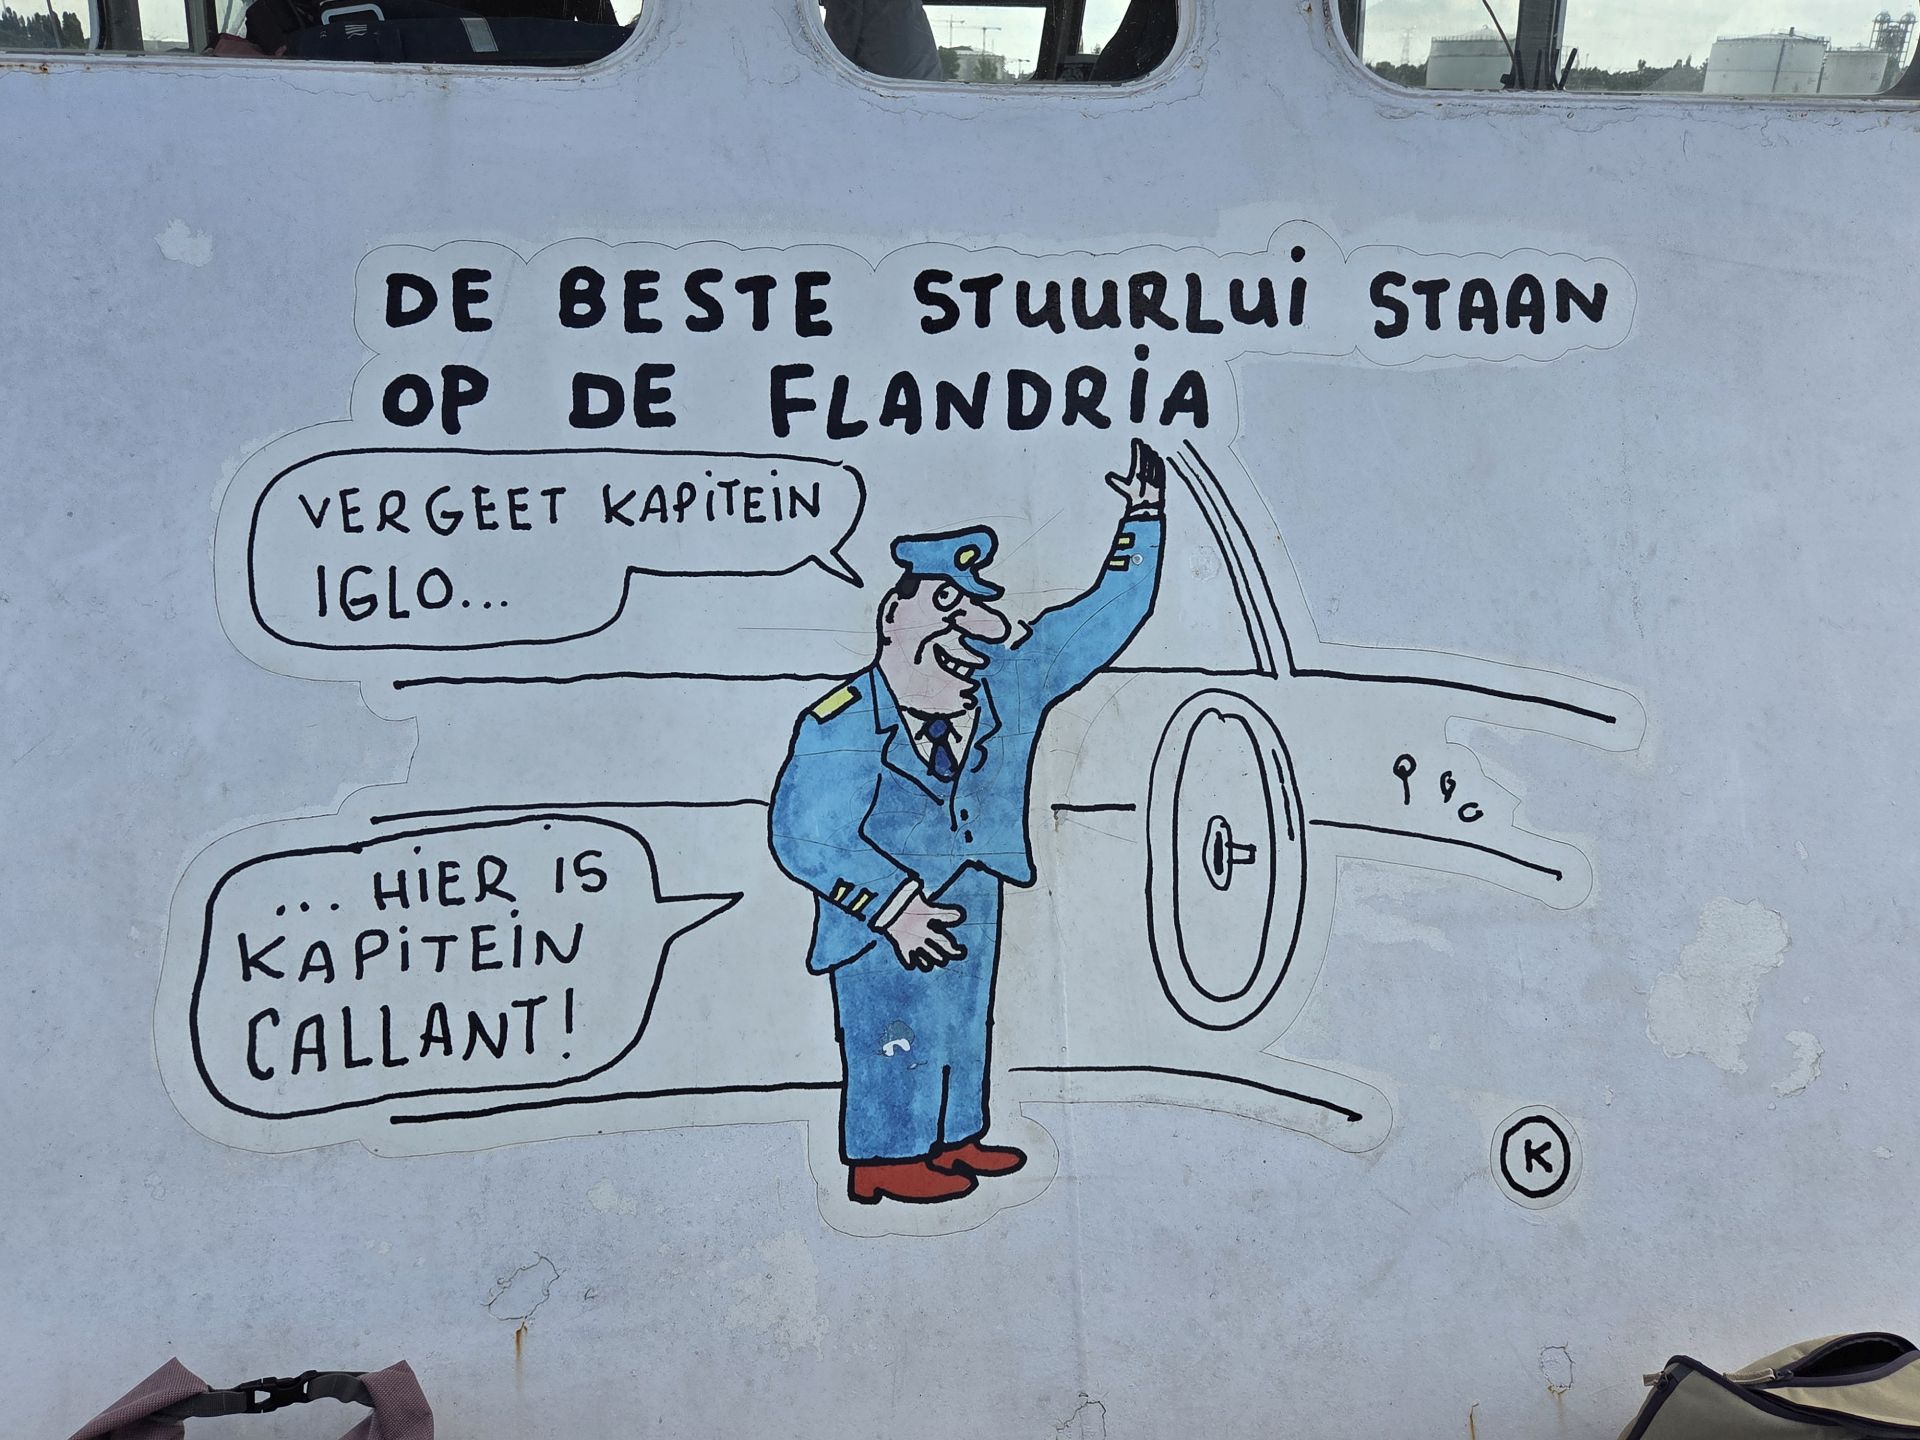 DE BESTE STUURLUi STAAN
OP DE FLANDRiA
VERGEET KAPiTEiN
IGLO...
... HiER IS
KAPiTEiN
CALLANT!
K